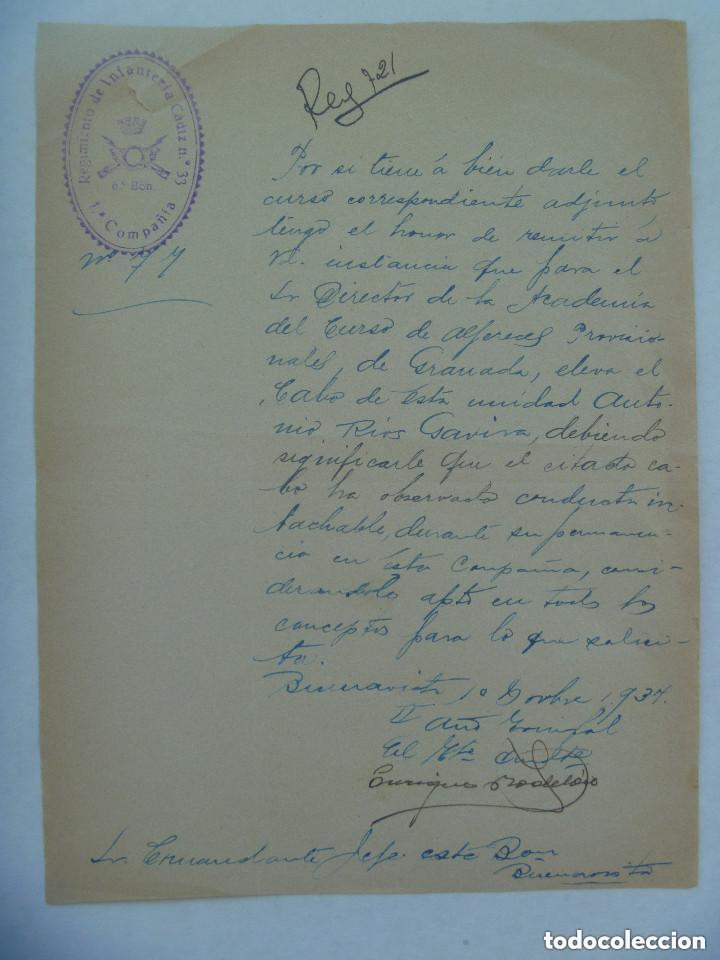 Regimiento de Infantería Cádiz n.º 33
6.º Bon.
1.ª Compañía
Reg 721
nº 74
Por si tiene á bien darle el
curso correspondiente adjunto
tengo el honor de remitir á
V. instancia que para el
Sr Director de la Academia
del Curso de Alfereces Provisio-
nales, de Granada, eleva el
Cabo de ésta unidad Anto-
nio Rios Gavira, debiendo
significarle que el citado ca-
bo ha observado conducta in-
tachable, durante su permanen-
cia en ésta Compañia, consi-
derandolo apto en todos los
conceptos para lo que solici-
ta.
Buenavista 1º 1.937.
II Año Triunfal
El
Enrique
Sr. Comandante Jefe este Bon
Buenavista
todocoleccion.net